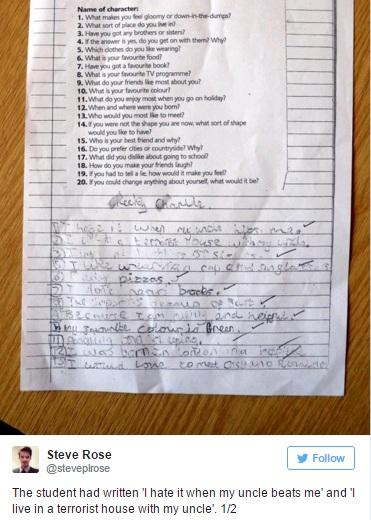 Name of character:
1. What makes you feel gloomy or down-in-the-dumps?
2. What sort of place do you live in?
3. Have you got any brothers or sisters?
4. If the answer is yes, do you get on with them? Why?
5. Which clothes do you like wearing?
6. What is your favourite food?
7. Have you got a favourite book?
8. What is your favourite TV programme?
9. What do your friends like most about you?
10. What is your favourite colour?
11. What do you enjoy most when you go on holiday?
12. When and where were you born?
13. Who would you most like to meet?
14. If you were not the shape you are now, what sort of shape
would you like to have?
15. Who is your best friend and why?
16. Do you prefer cities or countryside? Why?
17. What did you dislike about going to school?
18. How do you make your friends laugh?
19. If you had to tell a lie, how would it make you feel?
20. If you could change anything about yourself, what would it be?
Cheeky Charlie
1) I hate it when my uncle
2) I a house with my uncle.
5) I like wearing a cap and sunglasses
6) pizzas.
7) I books.
9) Because I am and helpful.
10) My favourite colour is green.
12) I was born in London in a
13) I would love to meet
Steve Rose
@steveplrose
Follow
The student had written 'I hate it when my uncle beats me' and 'I
live in a terrorist house with my uncle'. 1/2